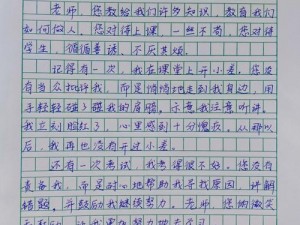 老师，您教给我们许多知识，教育我们
如何做人，您对待上课，一丝不苟，您对待
学生，循循善诱，不厌其烦。
记得有一次，我在课堂上开小差，您没
有当众批评我，而是悄悄地走到我身边，用
手轻轻碰了碰我的肩膀，示意我注意听讲。
我立刻脸红了，心里感到十分愧疚。从那以
后，我再也没有开过小差。
还有一次考试，我考得很不好。您没有
责备我，而是耐心地帮助我寻找原因，讲解
错题，并鼓励我继续努力。老师，您的微笑